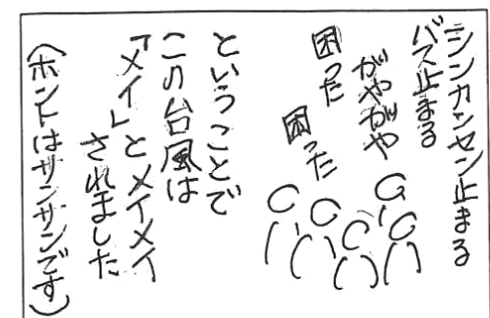 シンカンセン止まる
バス止まる
がやがや
困った
困った
ということで
この台風は
「メイ」とメイメイ
されました
(ホントはサンサンです)